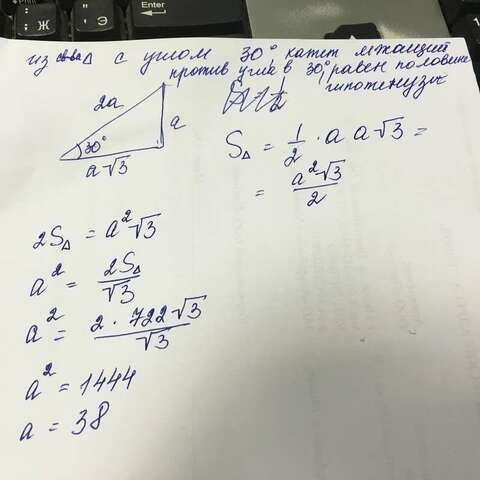 Enter
Ж
Э
из св-ва Δ с углом 30° катет лежащий
против угла в 30° равен половине
гипотенузы
2a
a
30°
a√3
S_Δ = 1/2 · a a√3 =
= a²√3/2
2S_Δ = a²√3
a² = 2S_Δ/√3
a² = 2 · 722√3/√3
a² = 1444
a = 38